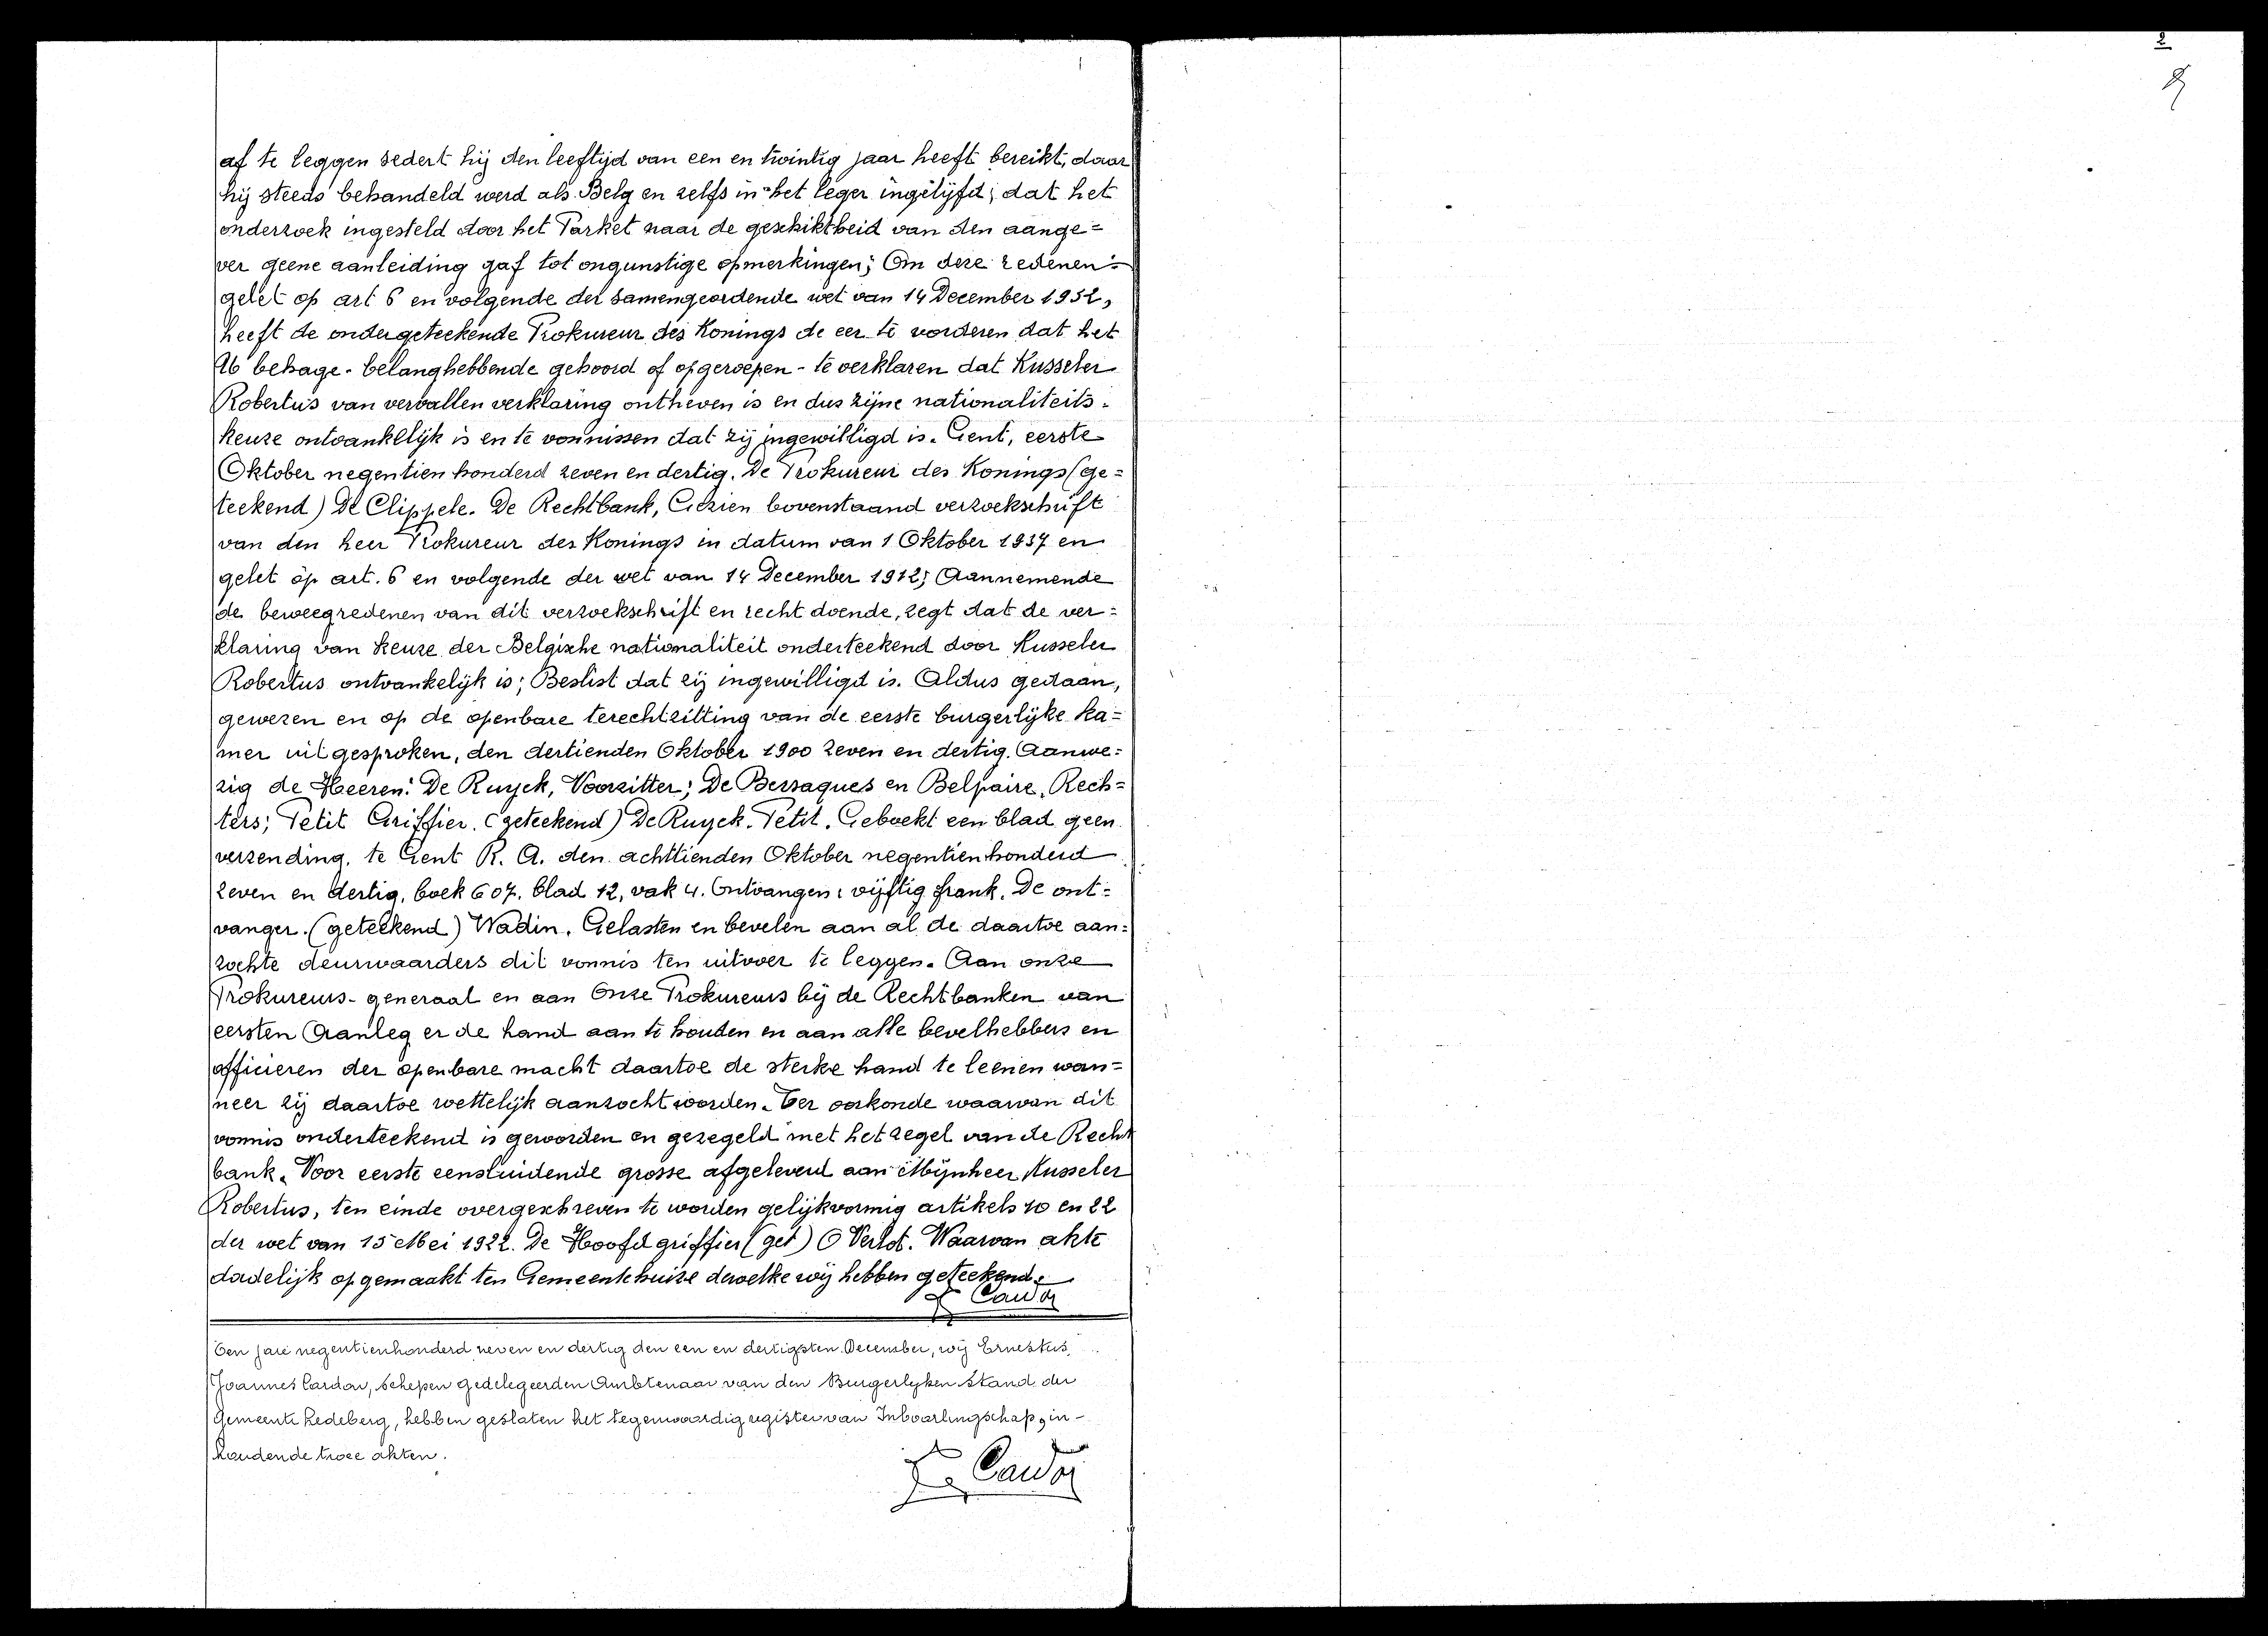 2
af te leggen sedert hij den leeftijd van een en twintig jaar heeft bereikt, daar
hij steeds behandeld werd als Belg en zelfs in het leger ingelijfd; dat het
onderzoek ingesteld door het Parket naar de geschiktheid van den aange=
ver geene aanleiding gaf tot ongunstige opmerkingen; Om deze redenen:
gelet op art 6 en volgende der samengeordende wet van 14 December 1932,
heeft de ondergeteekende Prokureur des Konings de eer te vorderen dat het
Ub behage - belanghebbende gehoord of opgeroepen - te verklaren dat Kusseler
Robertus van vervallen verklaring ontheven is en dus zijne nationaliteits=
keuze ontvankelijk is en te vonnissen dat zij ingewilligd is. Gent, eerste
Oktober negentien honderd zeven en dertig. De Prokureur des Konings (ge=
teekend) De Clippele. De Rechtbank, Gezien bovenstaand verzoekschrift
van den heer Prokureur des Konings in datum van 1 Oktober 1937 en
gelet op art. 6 en volgende der wet van 14 December 1932; Aannemende
de beweegredenen van dit verzoekschrift en recht doende, zegt dat de ver=
klaring van keuze der Belgische nationaliteit onderteekend door Kusseler
Robertus ontvankelijk is; Beslist dat zij ingewilligd is. Aldus gedaan,
gewezen en op de openbare terechtzitting van de eerste burgerlijke ka=
mer uitgesproken, den dertienden Oktober 1900 zeven en dertig. Aanwe=
zig de Heeren: De Ruyck, Voorzitter; De Bersaques en Belpaire, Rech=
ters; Petit Griffier. (geteekend) De Ruyck. Petit. Geboekt een blad geen
verzending, te Gent R. A. den achttienden Oktober negentien honderd
zeven en dertig, boek 607. blad 12, vak 4. Ontvangen: vijftig frank. De ont=
vanger. (geteekend) Wadin. Gelasten en bevelen aan al de daartoe aan=
zochte deurwaarders dit vonnis ten uitvoer te leggen. Aan onze
Prokureurs-generaal en aan Onze Prokureurs bij de Rechtbanken van
eersten Aanleg er de hand aan te houden en aan alle bevelhebbers en
officieren der openbare macht daartoe de sterke hand te leenen wan=
neer zij daartoe wettelijk aanzocht worden. Ter oorkonde waarvan dit
vonnis onderteekend is geworden en gezegeld met het zegel van de Recht
bank. Voor eerste eensluidende grosse afgeleverd aan Mijnheer Kusseler
Robertus, ten einde overgeschreven te worden gelijkvormig artikels 10 en 22
der wet van 15 Mei 1922. De Hoofdgriffier (get) O Verlot. Waarvan akte
dadelijk opgemaakt ten Gemeentehuize dewelke wij hebben geteekend.
Cardon
Ten jare negentienhonderd zeven en dertig den een en dertigsten December, wij Ernestus,
Joannes Cardon, schepen gedelegeerden Ambtenaar van den Burgerlijken Stand der
Gemeente Ledeberg, hebben gesloten het tegenwoordig register van Inboorlingschap, in-
houdende twee akten.
Cardon